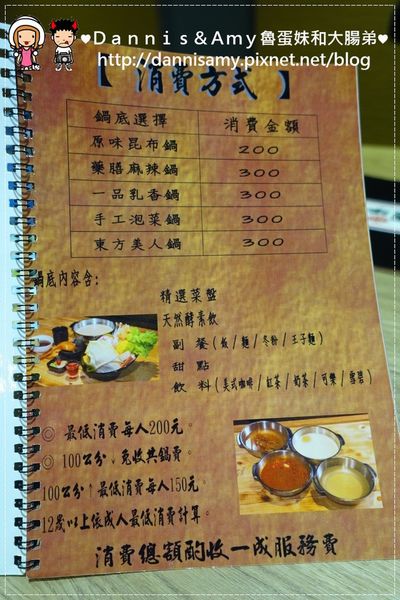 ♥Dannis&Amy魯蛋妹和大腸弟♥
http://dannisamy.pixnet.net/blog
【 消費方式 】
鍋底選擇 消費金額
原味昆布鍋 200
藥膳麻辣鍋 300
一品乳香鍋 300
手工泡菜鍋 300
東方美人鍋 300
鍋底內容含:
精選菜盤
天然酵素飲
副 餐(飯/麵/冬粉/王子麵)
甜 點
飲 料(美式咖啡/紅茶/奶茶/可樂/雪碧)
◎ 最低消費每人200元。
◎ 100公分↓免收共鍋費。
100公分↑最低消費每人150元。
12歲以上依成人最低消費計算。
消費總額酌收一成服務費